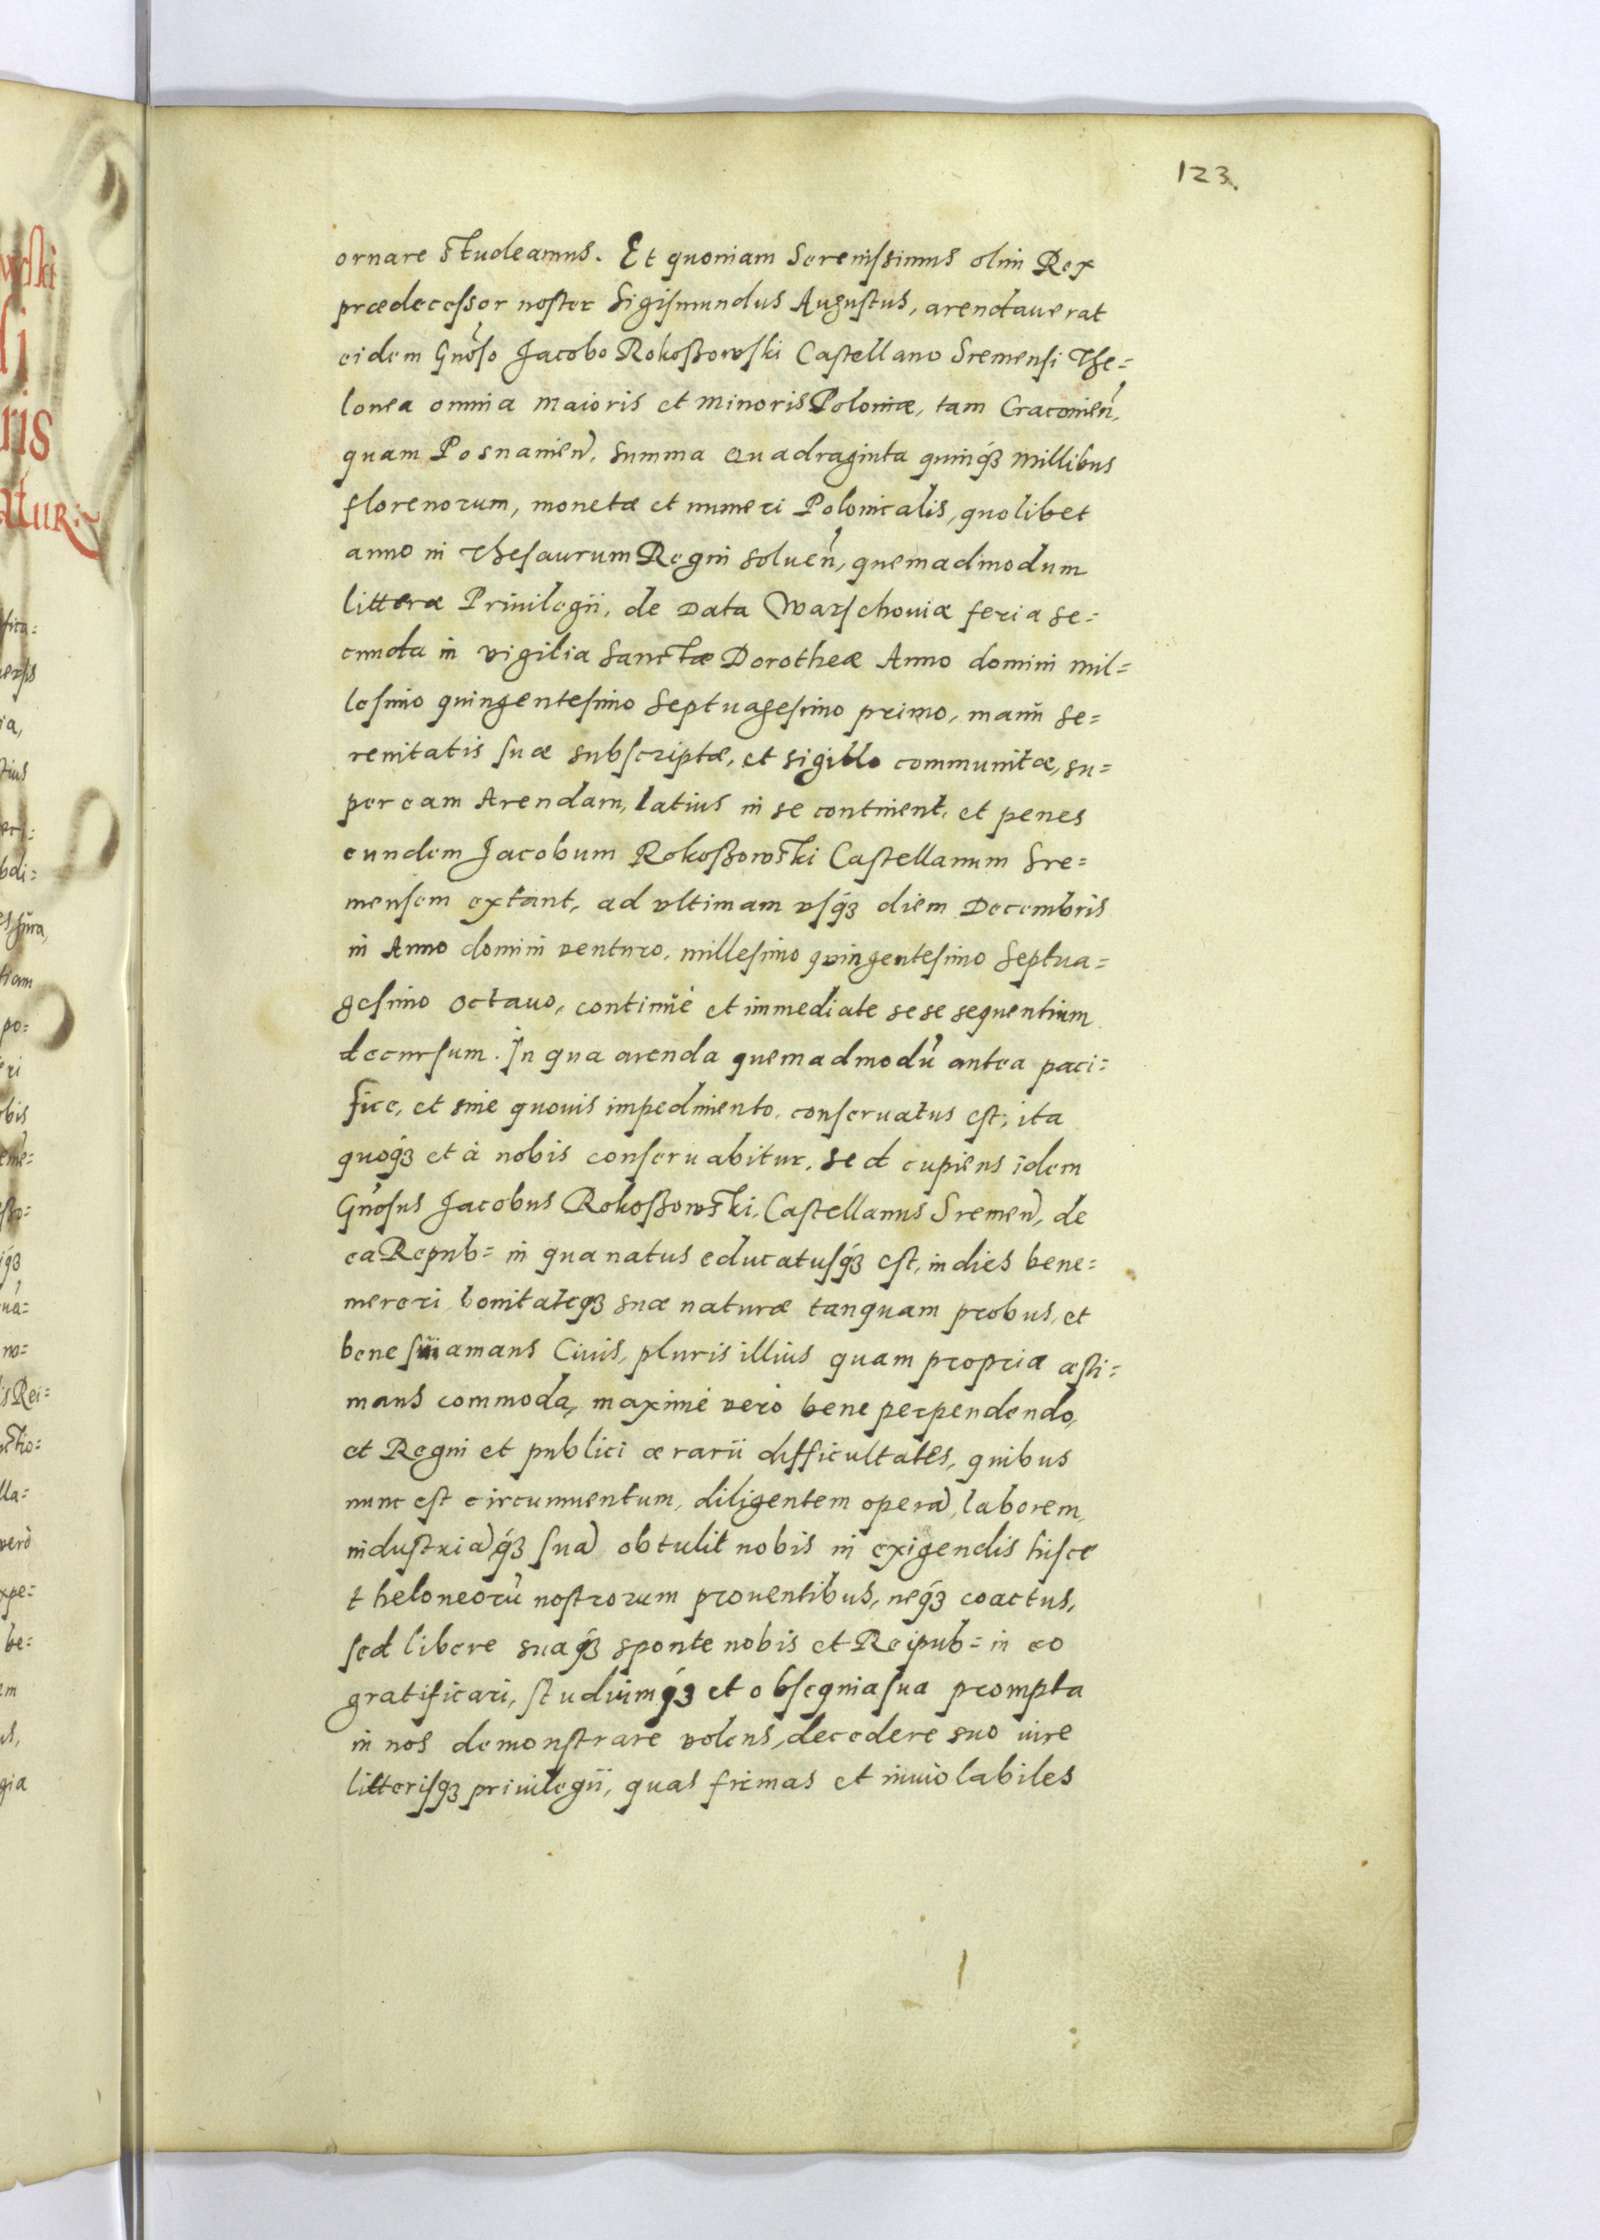 123.
ornare studeamus. Et quoniam Serenissimus olim Rex
prædecessor noster Sigismundus Augustus, arendauerat
eidem Gnoso Jacobo Rokoßowski Castellano Sremensi The=
lonea omnia maioris et minoris Poloniæ, tam Cracouien,
quam Posnanien, summa quadraginta quinqȝ millibus
florenorum, monetæ et numeri Polonicalis, quolibet
anno in Thesaurum Regni soluen, quemadmodum
litteræ Priuilegii, de Data Warschouiæ feria se=
cunda in vigilia Sanctæ Dorotheæ Anno domini mil=
lesimo quingentesimo Septuagesimo primo, manu se=
renitatis suæ subscriptæ, et sigillo communitæ, su=
per eam Arendam, latius in se continent, et penes
eundem Jacobum Rokoßowski Castellanum Sre=
mensem extant, ad vltimam vsqȝ diem Decembris
in Anno domini venturo, millesimo quingentesimo Septua=
gesimo octauo, continuè et immediate sese sequentium
decursum. In qua arenda quemadmodũ antea paci=
fice, et sine quouis impedimento, conseruatus est, ita
quoqȝ et à nobis conseruabitur, sed cupiens idem
Gnosus Jacobus Rokoßowski, Castellanus Sremen, de
ea Repub= in qua natus educatusqȝ est, in dies bene=
mereri, bonitateqȝ suæ naturæ tanquam probus, et
bene sui amans Ciuis, pluris illius quam propria æsti=
mans commoda, maximè verò bene perpendendo,
et Regni et publici ærarii difficultates, quibus
nunc est circumuentum, diligentem operã, laborem,
industriãqȝ suã obtulit nobis in exigendis hisce
theloneorũ nostrorum prouentibus, neqȝ coactus,
sed libere suaqȝ sponte nobis et Reipub= in eo
gratificari, studiumqȝ et obsequia sua prompta
in nos demonstrare volens, decedere suo iure
litterisqȝ priuilegii, quas firmas et inuiolabiles